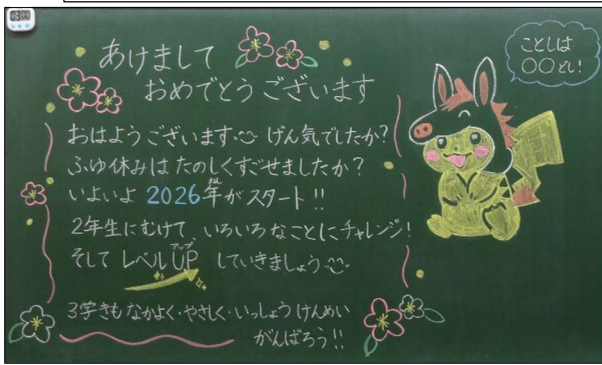 03:00
あけまして
おめでとうございます
ことしは
○○どし!
おはようございます。げん気でしたか?
ふゆ休みはたのしくすごせましたか?
いよいよ2026年がスタート!!
2年生にむけて、いろいろなことにチャレンジ!
アップ
そしてレベルUPしていきましょう。
3学きもなかよく・やさしく・いっしょうけんめい
がんばろう!!